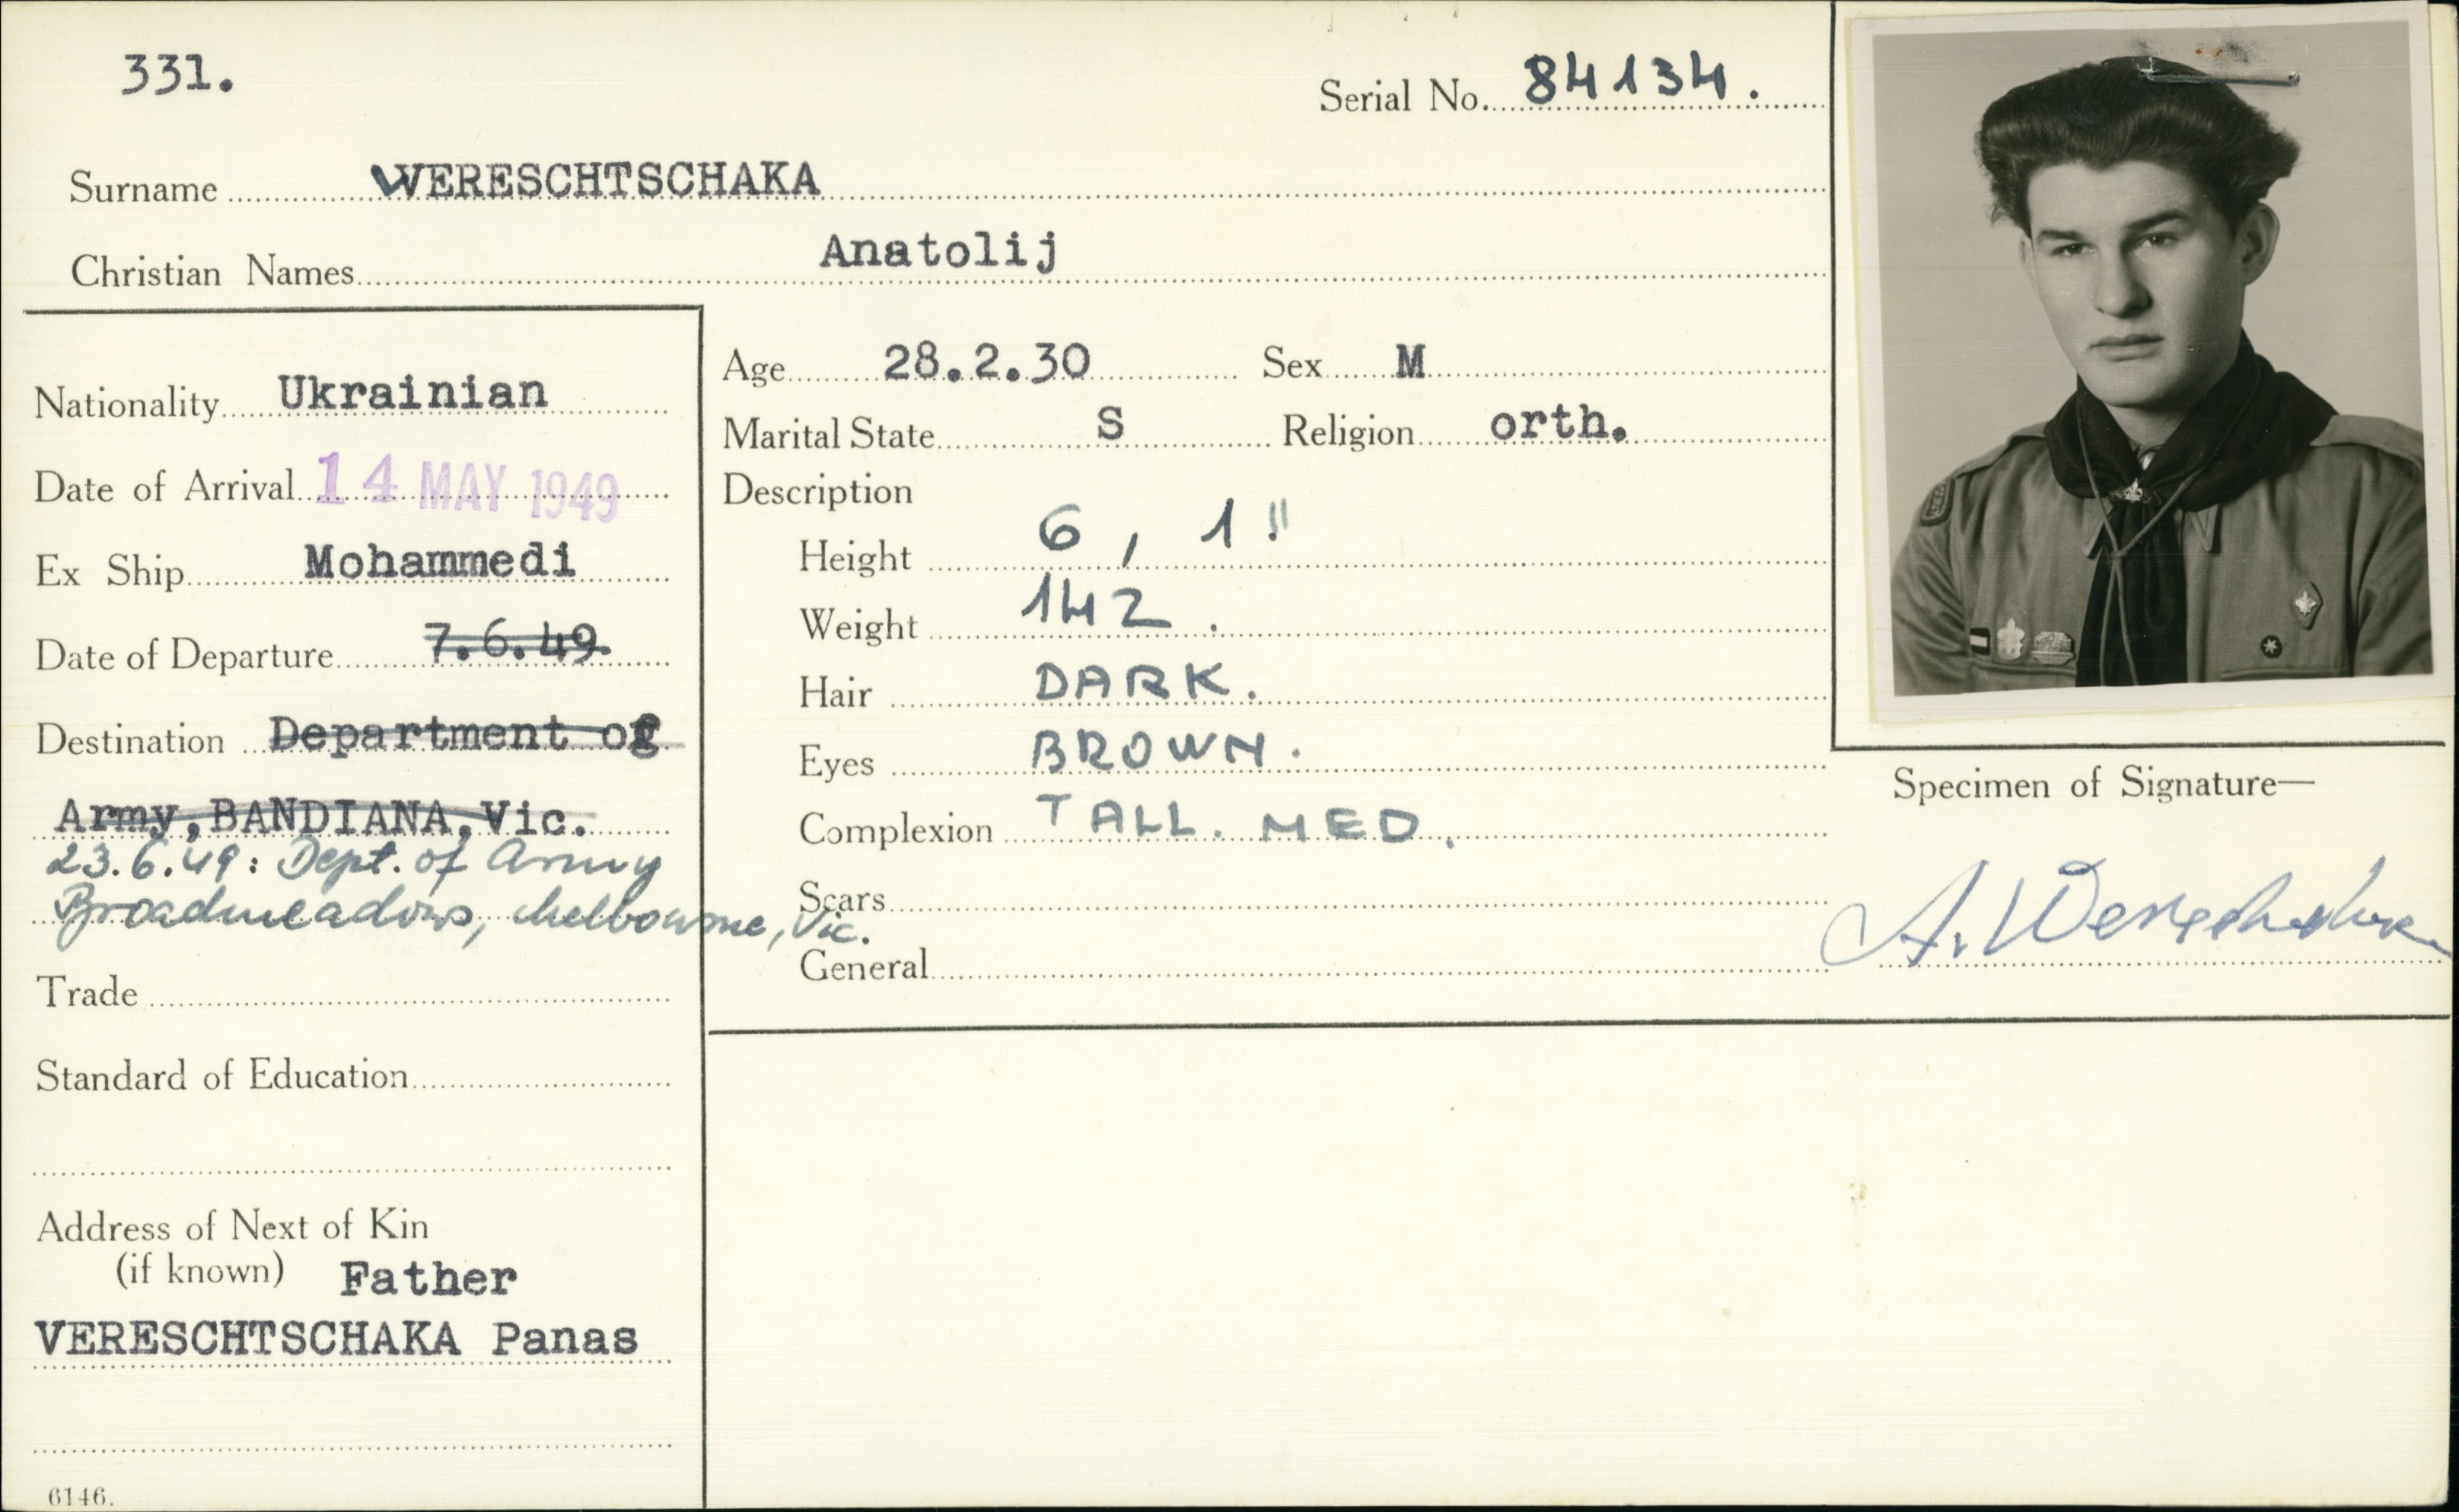 331.
Serial No. 84134.
Surname WERESCHTSCHAKA
Christian Names Anatolij
Nationality Ukrainian
Date of Arrival 14 MAY 1949
Ex Ship Mohammedi
Date of Departure 7.6.49.
Destination Department of
Army, BANDIANA, Vic.
23.6.49: Dept. of Army
Broadmeadows, Melbourne, Vic.
Trade
Standard of Education
Address of Next of Kin
(if known) Father
VERESCHTSCHAKA Panas
6146.
Age 28.2.30 Sex M
Marital State S Religion orth.
Description
Height 6, 1"
Weight 142.
Hair DARK.
Eyes BROWN.
Complexion TALL. MED.
Scars
General
Specimen of Signature—
A.